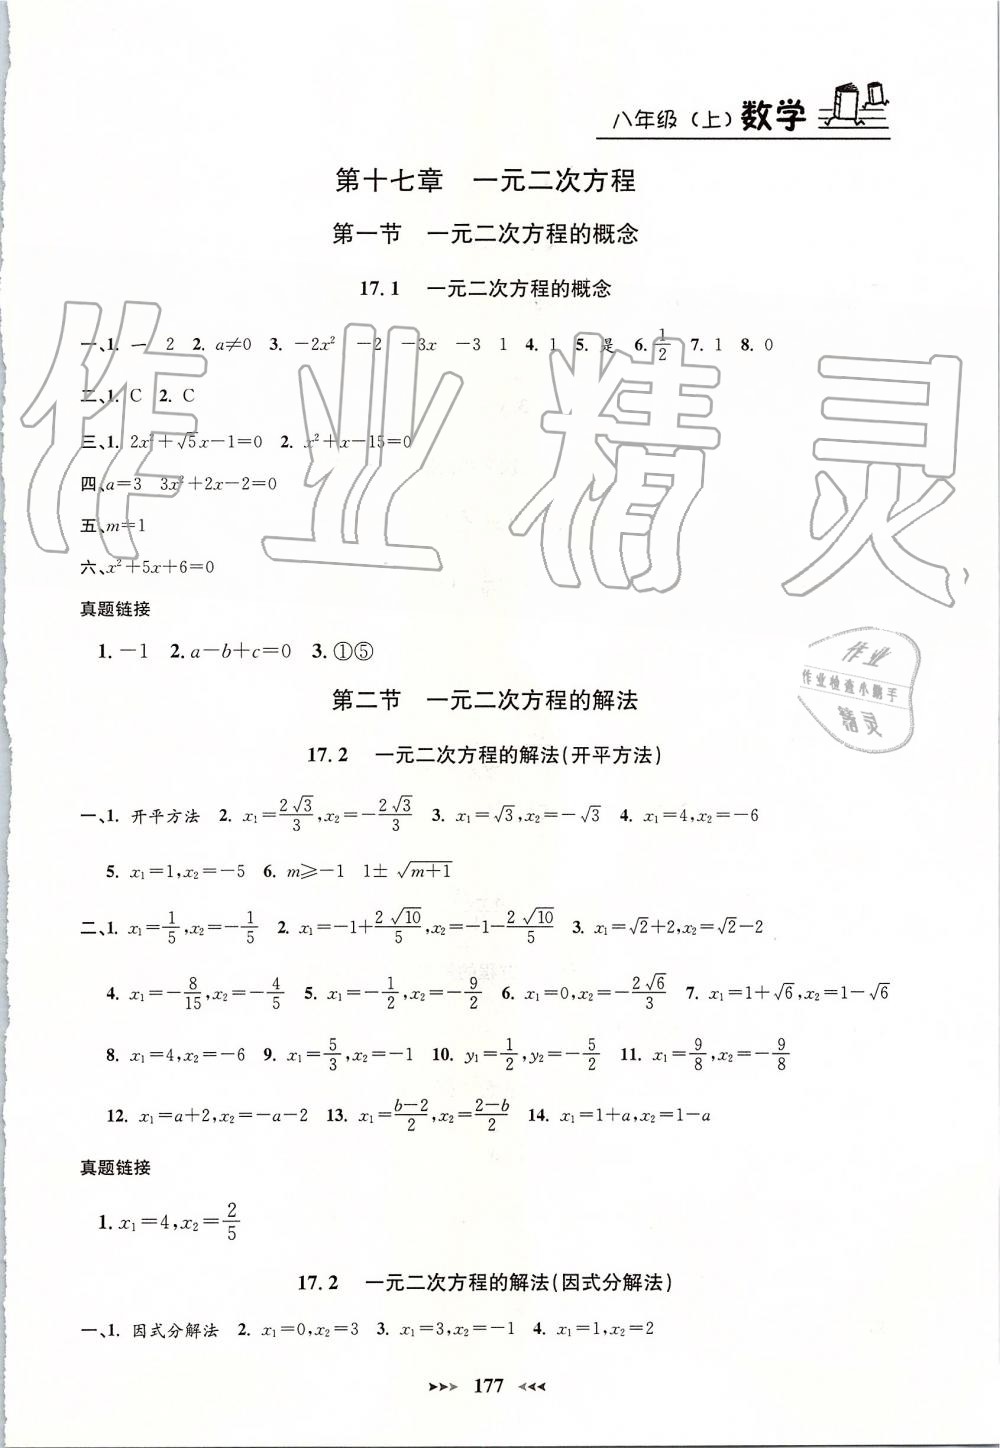 八年级（上）数学
第十七章　一元二次方程
第一节　一元二次方程的概念
17.1　一元二次方程的概念
一、1. 一　2　2. a≠0　3. －2x²　－2　－3x　－3　1　4. 1　5. 是　6. 1/2　7. 1　8. 0
二、1. C　2. C
三、1. 2x²＋√5x－1＝0　2. x²＋x－15＝0
四、a＝3　3x²＋2x－2＝0
五、m＝1
六、x²＋5x＋6＝0
真题链接
1. －1　2. a－b＋c＝0　3. ①⑤
第二节　一元二次方程的解法
17.2　一元二次方程的解法（开平方法）
一、1. 开平方法　2. x₁＝2√3/3，x₂＝－2√3/3　3. x₁＝√3，x₂＝－√3　4. x₁＝4，x₂＝－6
5. x₁＝1，x₂＝－5　6. m≥－1　1±√(m＋1)
二、1. x₁＝1/5，x₂＝－1/5　2. x₁＝－1＋2√10/5，x₂＝－1－2√10/5　3. x₁＝√2＋2，x₂＝√2－2
4. x₁＝－8/15，x₂＝－4/5　5. x₁＝－1/2，x₂＝－9/2　6. x₁＝0，x₂＝－2√6/3　7. x₁＝1＋√6，x₂＝1－√6
8. x₁＝4，x₂＝－6　9. x₁＝5/3，x₂＝－1　10. y₁＝1/2，y₂＝－5/2　11. x₁＝9/8，x₂＝－9/8
12. x₁＝a＋2，x₂＝－a－2　13. x₁＝(b－2)/2，x₂＝(2－b)/2　14. x₁＝1＋a，x₂＝1－a
真题链接
1. x₁＝4，x₂＝2/5
17.2　一元二次方程的解法（因式分解法）
一、1. 因式分解法　2. x₁＝0，x₂＝3　3. x₁＝3，x₂＝－1　4. x₁＝1，x₂＝2
177
作业精灵
作业
作业检查小助手
精灵